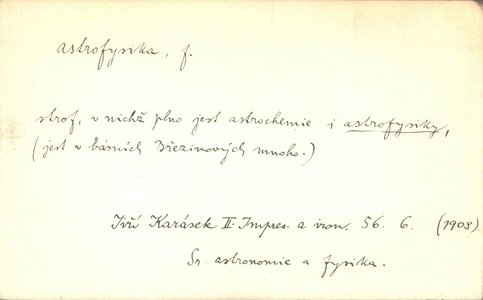 astrofysika, f.
strof, v nichž plno jest astrochemie i astrofysiky,
(jest v básních Březinových mnoho.)
Jiří Karásek II. Impres. a iron. 56. 6. (1903)
Sr. astronomie a fysika.